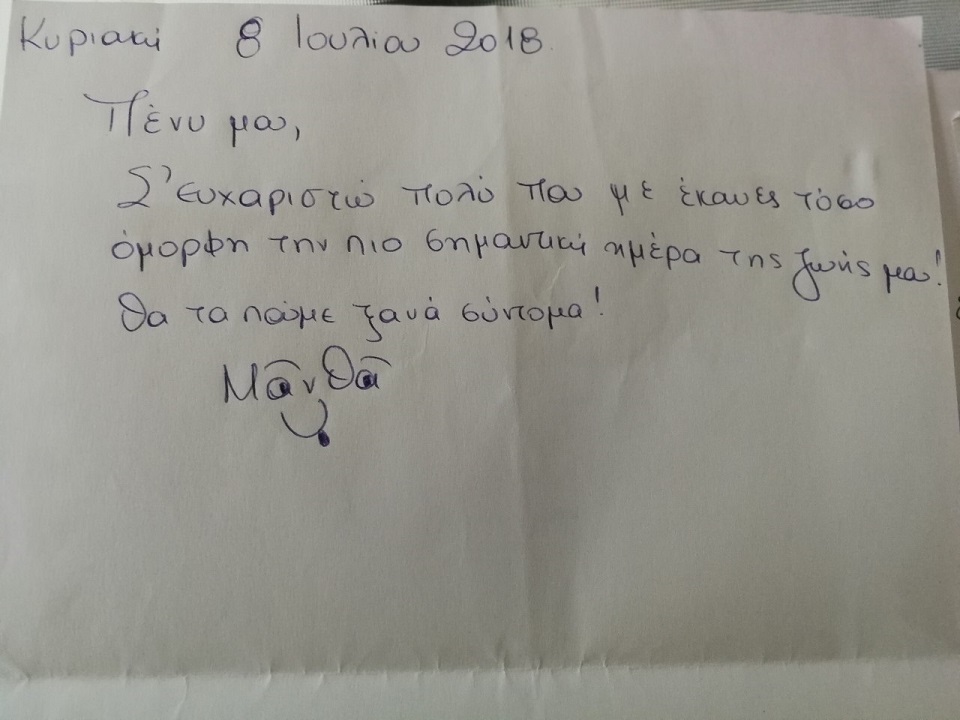 Κυριακή 8 Ιουλίου 2018
Πένυ μου,
Σ'ευχαριστώ πολύ που με έκανες τόσο
όμορφη την πιο σημαντική ημέρα της ζωής μου!
Θα τα πούμε ξανά σύντομα!
Μάνθα